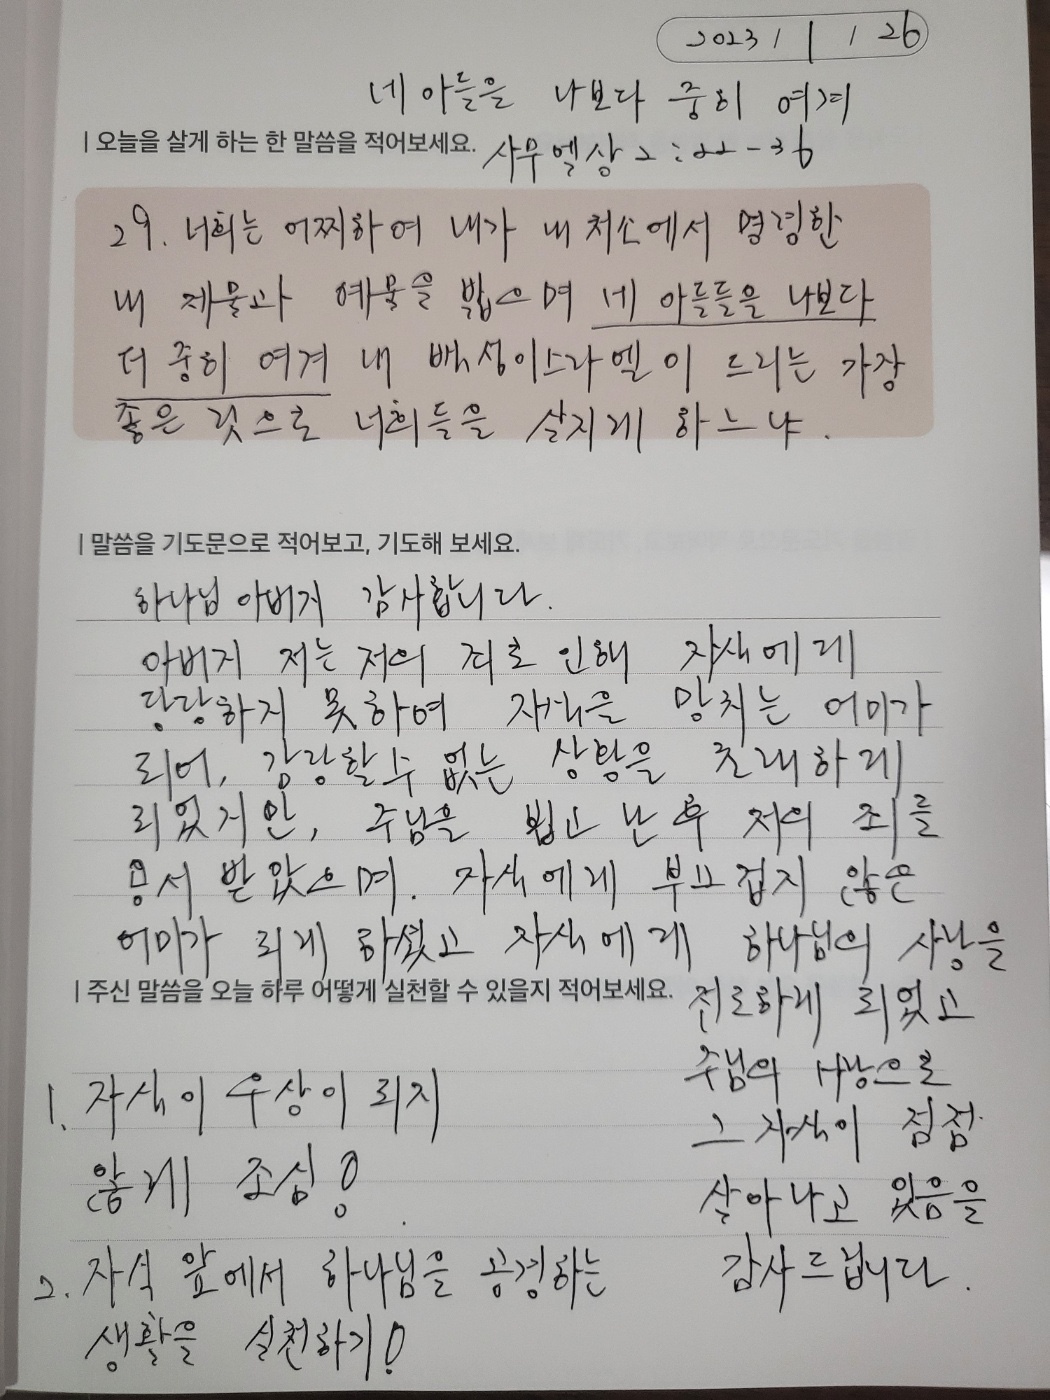 2023 / 1 / 26
네 아들을 나보다 중히 여겨
| 오늘을 살게 하는 한 말씀을 적어보세요.
사무엘상 2:22-36
29. 너희는 어찌하여 내가 내 처소에서 명령한
내 제물과 예물을 밟으며 네 아들들을 나보다
더 중히 여겨 내 백성이스라엘이 드리는 가장
좋은 것으로 너희들을 살지게 하느냐.
| 말씀을 기도문으로 적어보고, 기도해 보세요.
하나님 아버지 감사합니다.
아버지 저는 저의 죄로 인해 자식에게
당당하지 못하여 자식을 망치는 어미가
되어, 감당할 수 없는 상황을 초래하게
되었지만, 주님을 뵙고 난 후 저의 죄를
용서 받았으며. 자식에게 부끄럽지 않은
어미가 되게 하셨고 자식에게 하나님의 사랑을
전도하게 되었고
주님의 사랑으로
그 자식이 점점
살아나고 있음을
감사드립니다.
| 주신 말씀을 오늘 하루 어떻게 실천할 수 있을지 적어보세요.
1. 자식이 우상이 되지
않게 조심!
2. 자식 앞에서 하나님을 공경하는
생활을 실천하기!